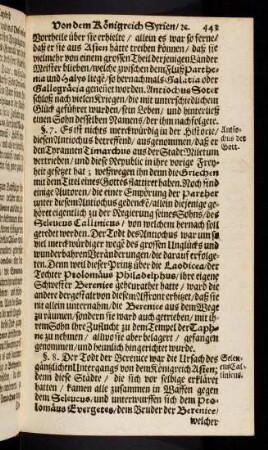 Von dem Königreich Syrien/ ꝛc. 443
Vortheile über sie erhielte / allein es war so ferne/
daß er sie aus Asien hatte treiben können / daß sie
vielmehr von einem grossen Theil derjenigen Länder
Meister blieben/welche zwischen dem Fluß Parthe-
nia und Halys liege/so hernachmals Galatia oder
Gallogræcia genennet worden. Antiochus Soter
schloß nach vielen Kriegen/ die mit unterschiedlichem
Glück geführet wurden/ sein Leben/ und hinterließ
einen Sohn desselben Namens/der ihm nachfolgete.
§. 7. Es ist nichts merckwürdig in der Historie/
diesen Antiochus betreffend/ ausgenommen/ daß er
den Tyrannen Timarchus aus der Stadt Miletum
vertrieben/ und diese Republic in ihre vorige Frey-
heit gesetzt hat; weßwegen ihn denn die Griechen
mit dem Titel eines Gottes stattiret haben. Noch sind
einige Autoren/ die einer Empörung der Parther
unter diesem Antiochus gedencken/ allein diejenige ge-
höret eigentlich zu der Regierung seines Sohns/ des
Seleucus Callinicus/ von welchem hernach soll
geredet werden. Der Todt des Antiochus war um so
viel merckwürdiger wegē des grossen Unglücks und
wunderbahren Veränderungen/ die darauf erfolge-
ten. Denn weil dieser Printz über die Laodicea/ der
Tochter Ptolomäus Philadelphus/ ihre eigene
Schwester Berenice geheurathet hatte / ward die
andere dergestalt von diesem Affront erhitzet/ daß sie
mit allem unternahm/ die Berenice aus dem Wege
zu räumen/ sondern sie ward auch getrieben/ mit ih-
rem Sohn ihre Zuflucht zu dem Tempel der Taph-
ne zu nehmen / allwo sie aber belagert / gefangen
genommen/ und heimlich hingerichtet wurde.
§. 8. Der Todt der Berenice war die Ursach des
gäntzlichen Untergangs von dem Königreich Asien;
denn diese Städte / die sich vor selbige erkläret
hatten / kamen alle zusammen in Waffen gegen
dem Seleucus, und unterwurffen sich dem Pto-
lomäus Evergetes/ dem Bruder der Berenice/
welcher
Antio-
chus der
Gott.
Seleu-
cus Cal-
linicus.